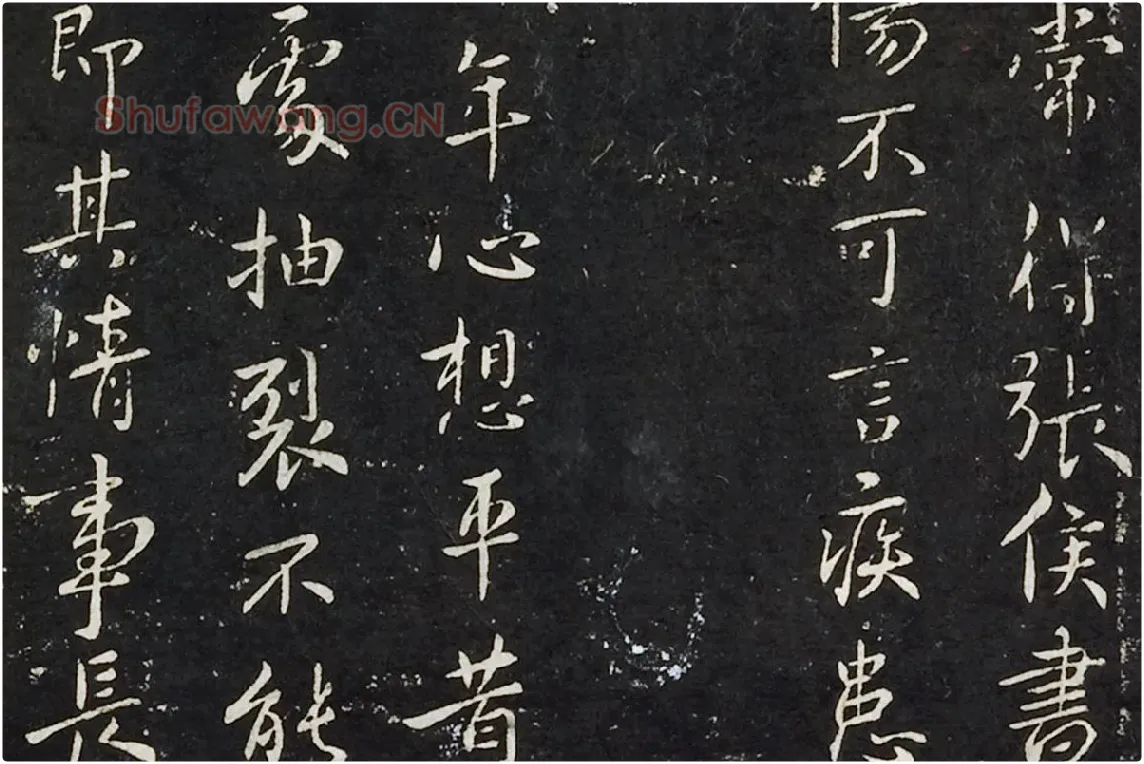 常得張侯書
不可言疾患
年心想平昔
處抽裂不能
即其情事長
Shufawang.CN